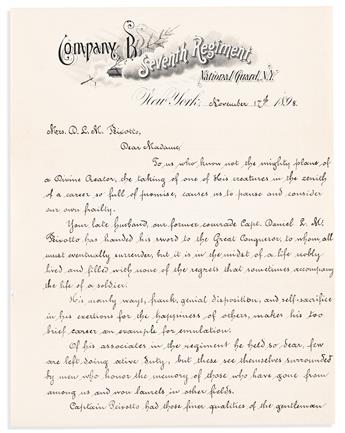 Company B.
Seventh Regiment,
National Guard, N.Y.
New York, November 17th 1898.
Mrs. D. L. M. Peixotto,
Dear Madame,
To us who know not the mighty plans of
a Divine Creator, the taking of one of His creatures in the zenith
of a career so full of promise, causes us to pause and consider
our own frailty.
Your late husband, our former comrade Capt. Daniel L. M.
Peixotto has handed his sword to the Great Conqueror, to whom all
must eventually surrender, but it is in the midst of a life nobly
lived and filled with none of the regrets that sometimes accompany
the life of a soldier.
His manly ways, frank, genial disposition, and self-sacrifice
in his exertions for the happiness of others, makes his too
brief career an example for emulation.
Of his associates in the regiment he held so dear, few
are left doing ative duty, but these see themselves surrounded
by men who honor the memory of those who have gone from
among us and won laurels in other fields.
Captain Peixotto had those finer qualities of the gentleman